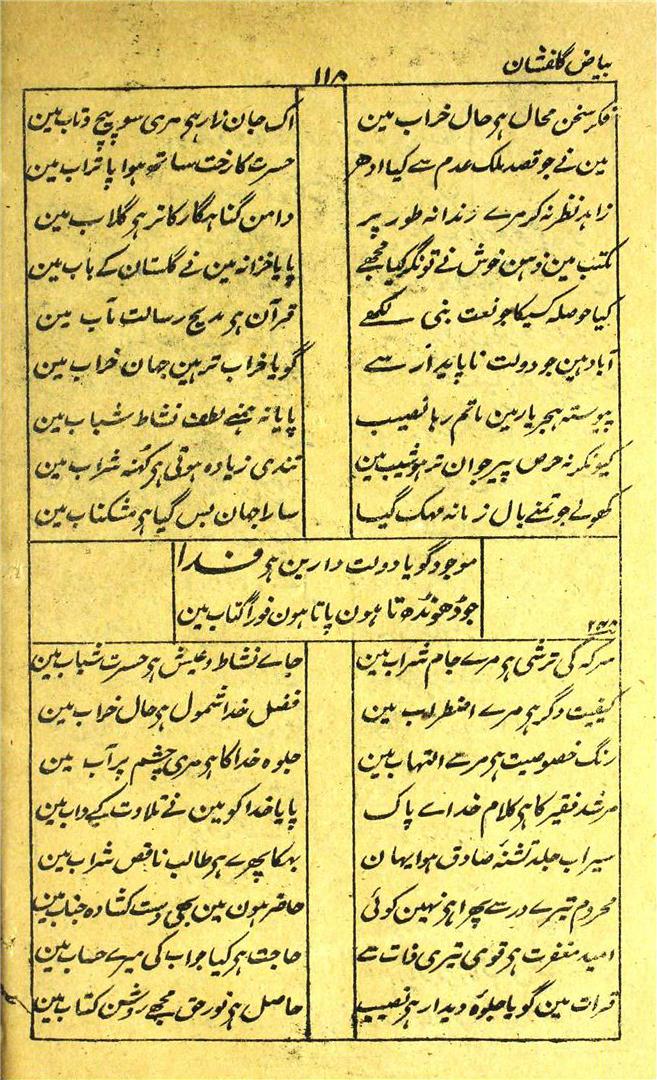 بیاض گلفشان
۱۱۸
فکر سخن محال ہر حال خراب مین اک جان زار ہر مری سو پیچ و تاب مین
مین نے جو قصد ملک عدم سے کیا ادھر حسرت کا رخت ساتھ ہوا پا تراب مین
زاہد نظر نہ کر مرے رندانہ طور پر دامن گناہگار کا تر ہر گلاب مین
مکتب مین ذہن خوش نے تونگر کیا مجھے پایا خزانہ مین نے گلستان کے باب مین
کیا حوصلہ کسیکا جو نعت نبی لکھے قرآن ہر مدیح رسالت مآب مین
آباد ہین جو دولت ناپایدار سے گویا خراب تر ہین جہان خراب مین
پیوستہ ہجر یار مین ماتم رہا نصیب پایا نہ ہمنے لطف نشاط شباب مین
کیونکر نہ حرص پیر جوان تر ہو شیب مین تندی زیادہ ہوتی ہر کہنہ شراب مین
کھولے جو تمنے بال زمانہ مہک گیا سارا جہان بس گیا ہر مشکناب مین
موجود گویا دولت دارین ہر فدا
جو ڈھونڈھتا ہون پاتا ہون فوراً کتاب مین
سرکہ کی ترشی ہر مرے جام شراب مین جاے نشاط و عیش ہر حسرت شباب مین
کیفیت دگر ہر مرے اضطراب مین فضل خدا شمول ہر حال خراب مین
رنگ خصوصیت ہر مرے التہاب مین جلوہ خدا کا ہر مری چشم پر آب مین
مرشد فقیر کا ہر کلام خداے پاک پایا خدا کو مین نے تلاوت کے داب مین
سیراب جلد تشنہ صادق ہوا یہان بہکا پھرے ہر طالب ناقص شراب مین
محروم تیرے در سے پھرا ہر نہین کوئی حاضر ہون مین بھی دست کشادہ جناب مین
امید مغفرت ہر قوی تیری ذات سے حاجت ہر کیا جواب کی میرے حساب مین
قرات مین گویا جلوۂ دیدار ہر نصیب حاصل ہر نور حق مجھے روشن کتاب مین